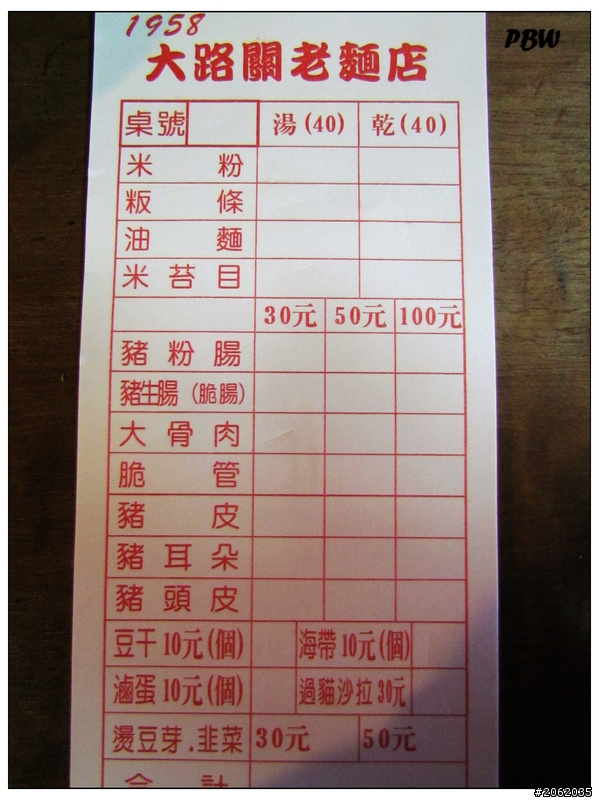 1958
PBW
大路關老麵店
桌號 湯(40) 乾(40)
米粉
粄條
油麵
米苔目
30元 50元 100元
豬粉腸
豬生腸(脆腸)
大骨肉
脆管
豬皮
豬耳朵
豬頭皮
豆干10元(個) 海帶10元(個)
滷蛋10元(個) 過貓沙拉30元
燙豆芽.韭菜 30元 50元
合計
#2062035